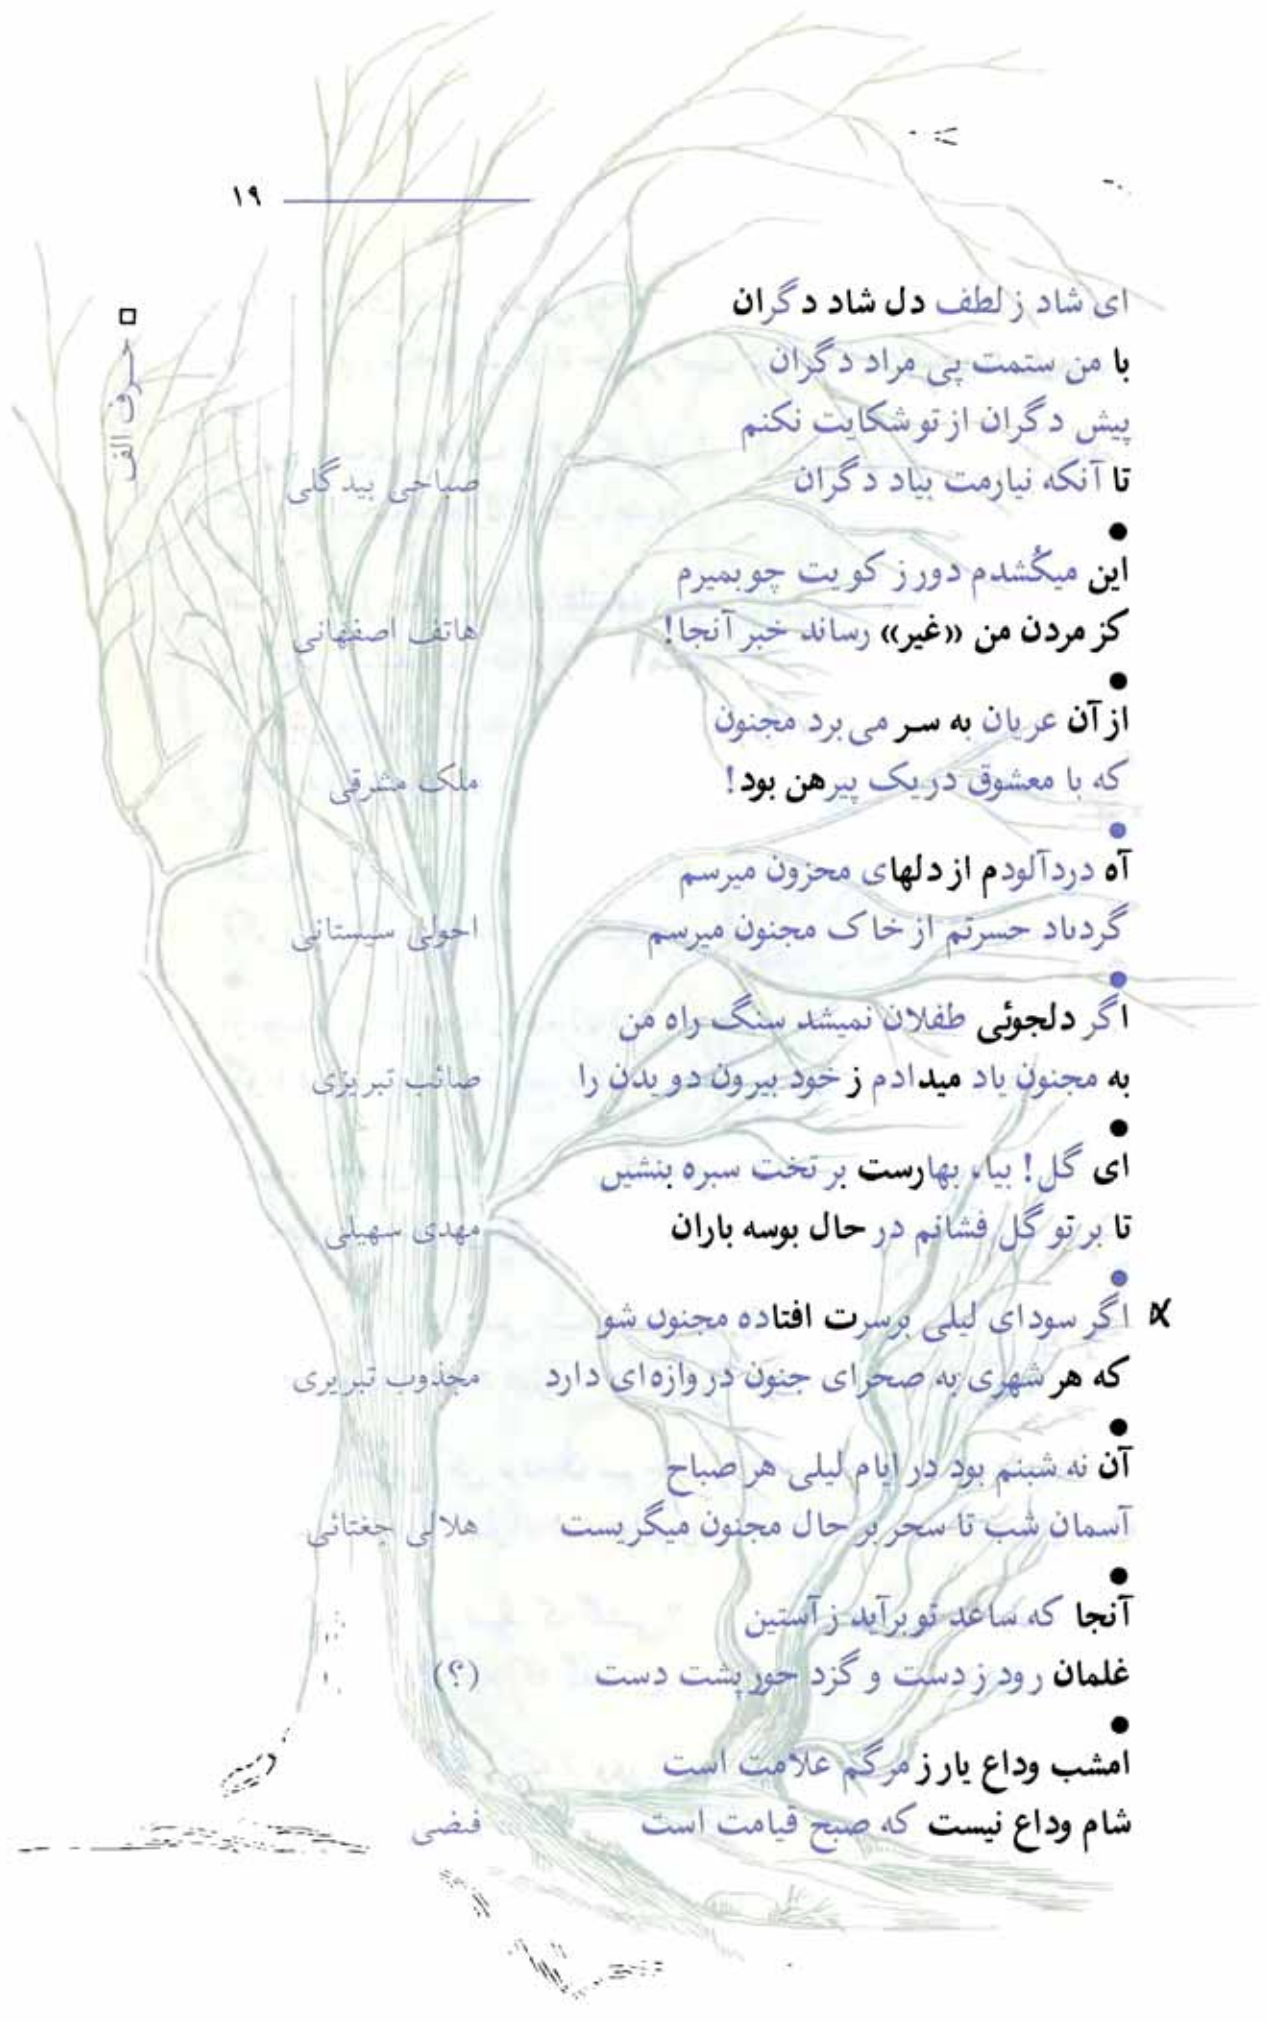 ۱۹
□ حرف الف
ای شاد ز لطف دل شاد دگران
با من ستمت پی مراد دگران
پیش دگران از تو شکایت نکنم
تا آنکه نیارمت بیاد دگران صباحی بیدگلی
●
این میکُشدم دور ز کویت چو بمیرم
کز مردن من «غیر» رساند خبر آنجا! هاتف اصفهانی
●
از آن عریان به سر می‌برد مجنون
که با معشوق در یک پیرهن بود! ملک مشرقی
●
آه دردآلودم از دلهای محزون میرسم
گردباد حسرتم از خاک مجنون میرسم احولی سیستانی
●
اگر دلجوئی طفلان نمیشد سنگ راه من
به مجنون یاد میدادم ز خود بیرون دویدن را صائب تبریزی
●
ای گل! بیا، بهارست بر تخت سبزه بنشین
تا بر تو گل فشانم در حال بوسه باران مهدی سهیلی
●
اگر سودای لیلی برسرت افتاده مجنون شو
که هر شهری به صحرای جنون دروازه‌ای دارد مجذوب تبریزی
●
آن نه شبنم بود در ایام لیلی هر صباح
آسمان شب تا سحر بر حال مجنون میگریست هلالی جغتائی
●
آنجا که ساعد تو برآید ز آستین
غلمان رود ز دست و گزد حور پشت دست (؟)
●
امشب وداع یار ز مرگم علامت است
شام وداع نیست که صبح قیامت است فیضی